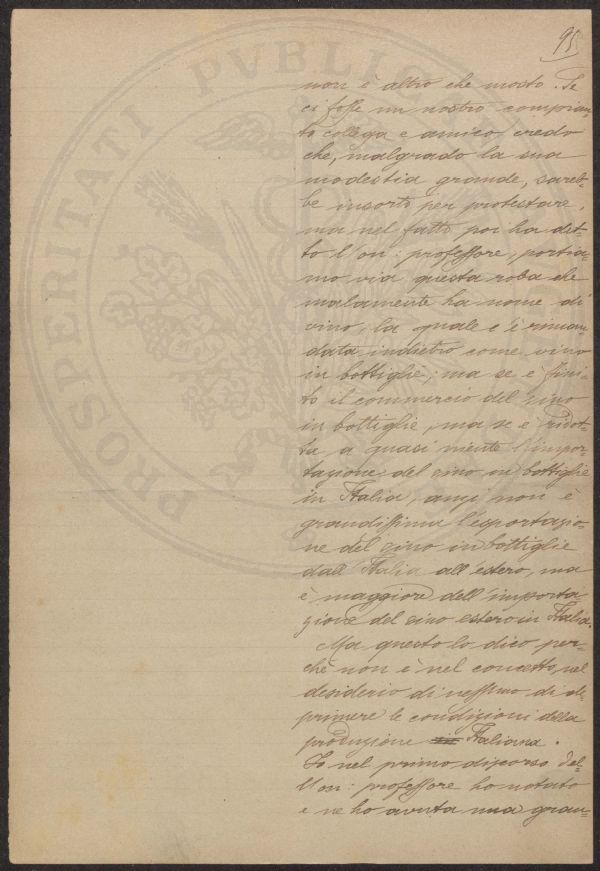 95
non è altro che mosto. Se
ci fosse un nostro compian-
to collega e amico, credo
che, malgrado la sua
modestia grande, sareb-
be insorto per protestare,
ma nel fatto poi ha det-
to l'on: professore, portia-
mo via questa roba che
malamente ha nome di
vino, la quale ci è riman-
data indietro come vino
in bottiglie; ma se è fini-
to il commercio del vino
in bottiglie, ma se è ridot-
ta, a quasi niente l'impor-
tazione del vino in bottiglie
in Italia, anzi non è
grandissima l'esportazio-
ne del vino in bottiglie
dall'Italia all'estero, ma
è maggiore dell'importa-
zione del vino estero in Italia.
Ma questo lo dico per-
chè non è nel concetto, nel
desiderio di nessuno di de-
primere le condizioni della
produzione Italiana.
Io nel primo discorso del-
l'on: professore ho notato
e ne ho avuta una gran-
PROSPERITATI PVBLIC